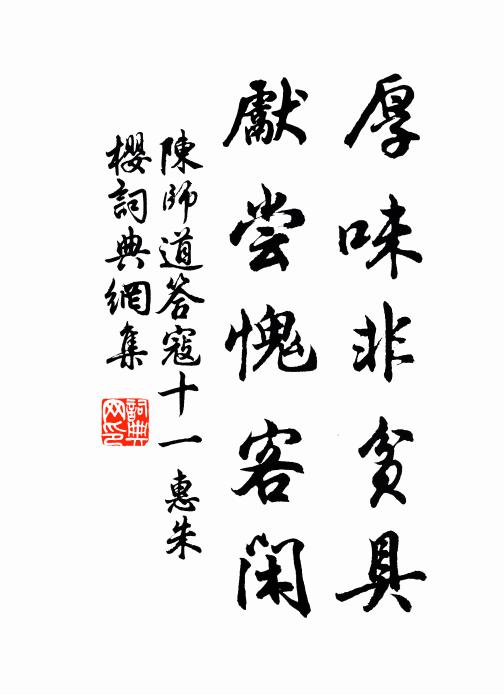 厚味非貧具
獻尝愧客閑
陳師道答寇十一 惠朱
櫻詞典網集
詞典
网印